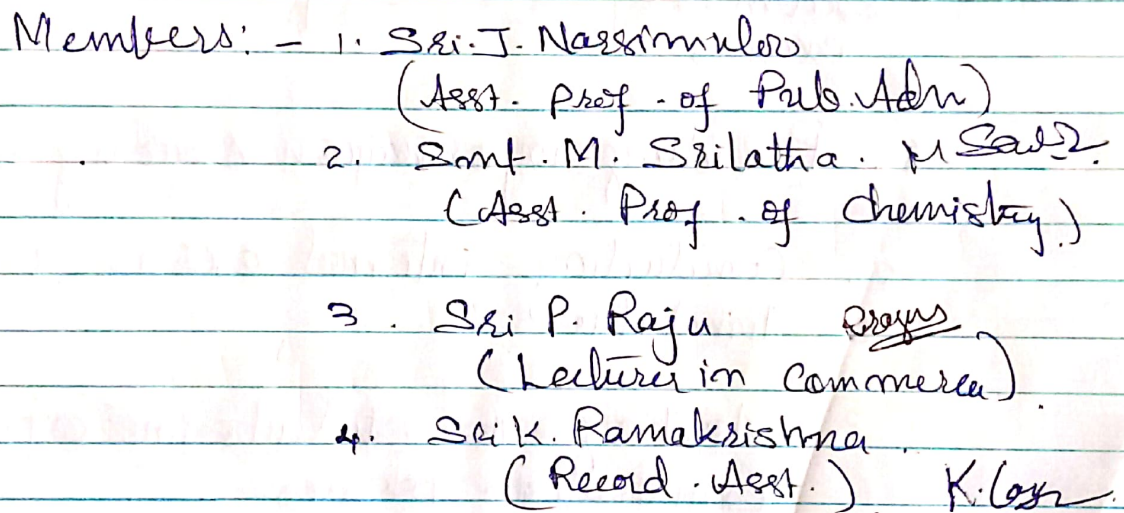 Members: - 1. Sri. J. Narsimulu
(Asst. Prof. of Pub. Adn)
2. Smt. M. Srilatha.
(Asst. Prof. of Chemistry.)
3. Sri P. Raju
(Lecturer in Commerce).
4. Sri K. Ramakrishna.
(Record. Asst.)